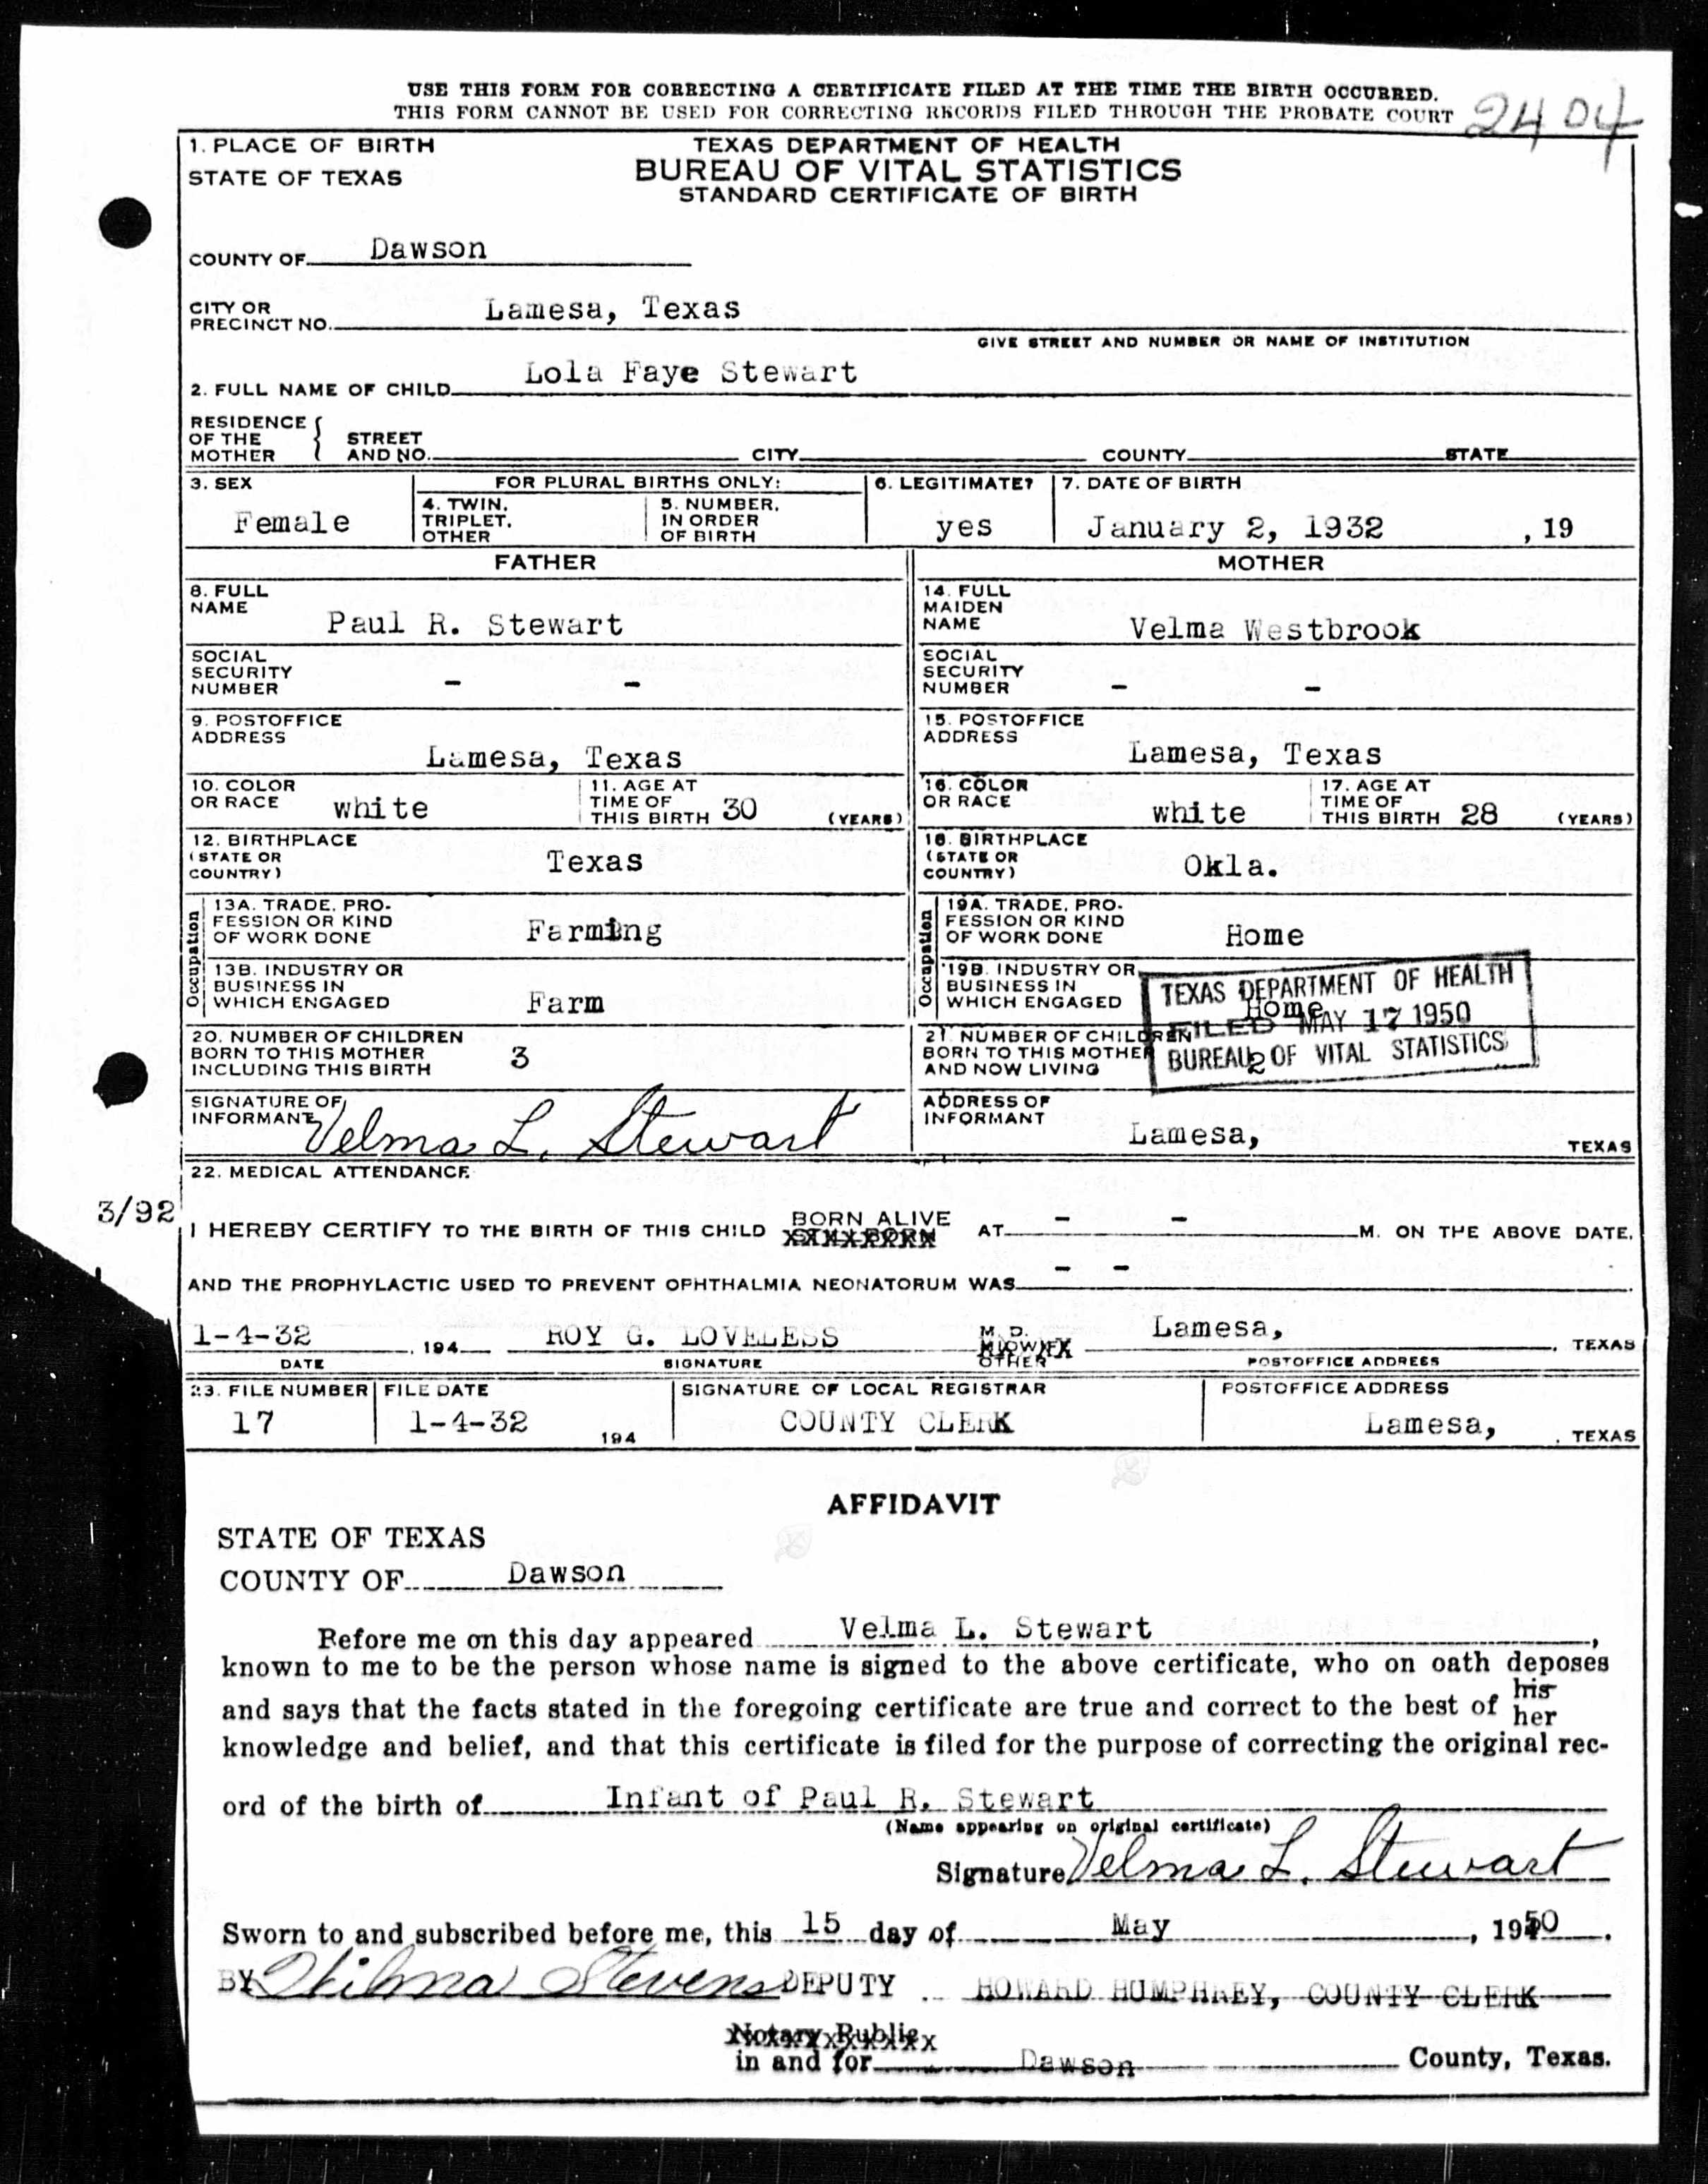 USE THIS FORM FOR CORRECTING A CERTIFICATE FILED AT THE TIME THE BIRTH OCCURRED.
THIS FORM CANNOT BE USED FOR CORRECTING RECORDS FILED THROUGH THE PROBATE COURT
2404
1. PLACE OF BIRTH
STATE OF TEXAS
TEXAS DEPARTMENT OF HEALTH
BUREAU OF VITAL STATISTICS
STANDARD CERTIFICATE OF BIRTH
COUNTY OF Dawson
CITY OR
PRECINCT NO. Lamesa, Texas
GIVE STREET AND NUMBER OR NAME OF INSTITUTION
2. FULL NAME OF CHILD Lola Faye Stewart
RESIDENCE
OF THE
MOTHER { STREET
AND NO. CITY COUNTY STATE
3. SEX
Female
FOR PLURAL BIRTHS ONLY:
4. TWIN,
TRIPLET,
OTHER
5. NUMBER,
IN ORDER
OF BIRTH
6. LEGITIMATE?
yes
7. DATE OF BIRTH
January 2, 1932 , 19
FATHER
8. FULL
NAME Paul R. Stewart
SOCIAL
SECURITY
NUMBER - -
9. POSTOFFICE
ADDRESS
Lamesa, Texas
10. COLOR
OR RACE white
11. AGE AT
TIME OF
THIS BIRTH 30 (YEARS)
12. BIRTHPLACE
(STATE OR
COUNTRY) Texas
Occupation
13A. TRADE, PRO-
FESSION OR KIND
OF WORK DONE Farming
13B. INDUSTRY OR
BUSINESS IN
WHICH ENGAGED Farm
MOTHER
14. FULL
MAIDEN
NAME Velma Westbrook
SOCIAL
SECURITY
NUMBER - -
15. POSTOFFICE
ADDRESS
Lamesa, Texas
16. COLOR
OR RACE white
17. AGE AT
TIME OF
THIS BIRTH 28 (YEARS)
18. BIRTHPLACE
(STATE OR
COUNTRY) Okla.
Occupation
19A. TRADE, PRO-
FESSION OR KIND
OF WORK DONE Home
19B. INDUSTRY OR
BUSINESS IN
WHICH ENGAGED Home
TEXAS DEPARTMENT OF HEALTH
FILED MAY 17 1950
BUREAU OF VITAL STATISTICS
20. NUMBER OF CHILDREN
BORN TO THIS MOTHER
INCLUDING THIS BIRTH 3
21. NUMBER OF CHILDREN
BORN TO THIS MOTHER
AND NOW LIVING 2
SIGNATURE OF
INFORMANT Velma L. Stewart
ADDRESS OF
INFORMANT Lamesa, TEXAS
22. MEDICAL ATTENDANCE
3/92
I HEREBY CERTIFY TO THE BIRTH OF THIS CHILD BORN ALIVE
STILLBORN AT - - M. ON THE ABOVE DATE,
AND THE PROPHYLACTIC USED TO PREVENT OPHTHALMIA NEONATORUM WAS - -
1-4-32 , 194 ROY G. LOVELESS M. D.
MIDWIFE
OTHER Lamesa, , TEXAS
DATE SIGNATURE POSTOFFICE ADDRESS
23. FILE NUMBER
17
FILE DATE
1-4-32 194
SIGNATURE OF LOCAL REGISTRAR
COUNTY CLERK
POSTOFFICE ADDRESS
Lamesa, , TEXAS
AFFIDAVIT
STATE OF TEXAS
COUNTY OF Dawson
Before me on this day appeared Velma L. Stewart ,
known to me to be the person whose name is signed to the above certificate, who on oath deposes
and says that the facts stated in the foregoing certificate are true and correct to the best of his
her
knowledge and belief, and that this certificate is filed for the purpose of correcting the original rec-
ord of the birth of Infant of Paul R. Stewart
(Name appearing on original certificate)
Signature Velma L. Stewart
Sworn to and subscribed before me, this 15 day of May , 1950 .
BY Wilma Stevens DEPUTY HOWARD HUMPHREY, COUNTY CLERK
Notary Public
in and for Dawson County, Texas.